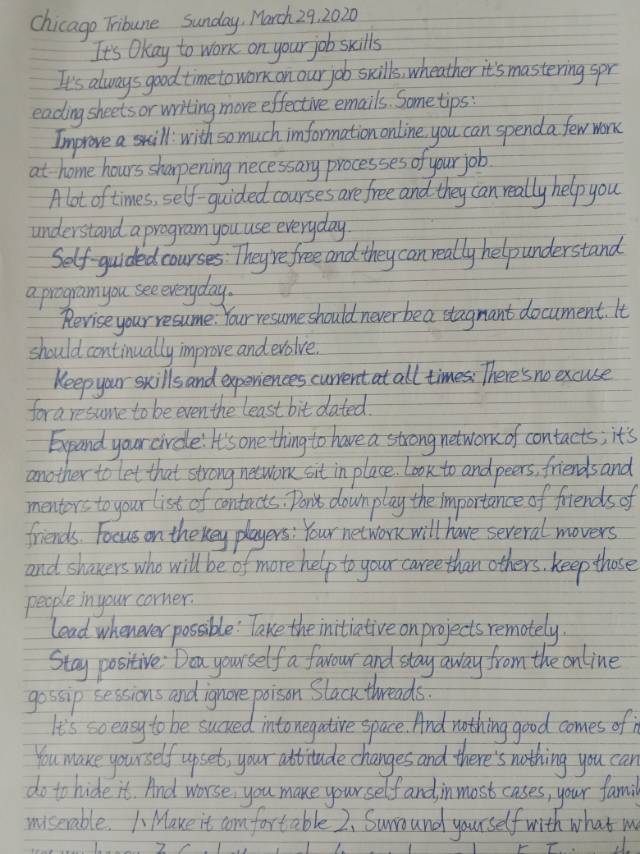 Chicago Tribune Sunday, March 29, 2020
It's Okay to work on your job skills
It's always good time to work on our job skills, wheather it's mastering spr
eading sheets or writing more effective emails. Some tips:
Improve a skill: with so much imformation online, you can spend a few work
at-home hours sharpening necessary processes of your job.
A lot of times, self-guided courses are free and they can really help you
understand a program you use everyday.
Self-guided courses: They're free and they can really help understand
a program you see everyday.
Revise your resume: Your resume should never be a stagnant document. It
should continually improve and evolve.
Keep your skills and experiences current at all times: There's no excuse
for a resume to be even the least bit dated.
Expand your circle: It's one thing to have a strong network of contacts; it's
another to let that strong network sit in place. Look to and peers, friends and
mentors to your list of contacts. Don't down play the importance of friends of
friends. Focus on the key players: Your network will have several movers
and shakers who will be of more help to your caree than others. keep those
people in your corner.
Lead whenever possible: Take the initiative on projects remotely.
Stay positive: Dou yourself a favour and stay away from the online
gossip sessions and ignore poison Slack threads.
It's so easy to be sucked into negative space. And nothing good comes of it
You make yourself upset, your attitude changes and there's nothing you can
do to hide it. And worse, you make your self and, in most cases, your famil
miserable. 1、Make it comfortable 2、Surround yourself with what ma